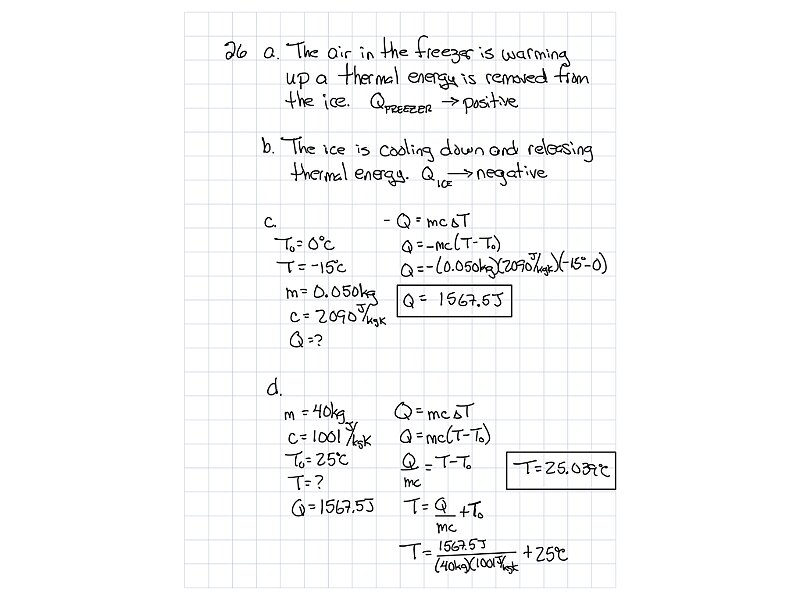 26 a. The air in the freezer is warming
up a thermal energy is removed from
the ice. Q FREEZER → positive
b. The ice is cooling down and releasing
thermal energy. Q ICE → negative
c.
T₀ = 0°C
T = -15°C
m = 0.050kg
c = 2090 J/kgK
Q = ?
- Q = mcΔT
Q = -mc(T-T₀)
Q = -(0.050kg)(2090 J/kgK)(-15°-0)
Q = 1567.5J
d.
m = 40kg
c = 1001 J/kgK
T₀ = 25°C
T = ?
Q = 1567.5J
Q = mcΔT
Q = mc(T-T₀)
Q/mc = T-T₀
T = Q/mc + T₀
T = 1567.5J/(40kg)(1001J/kgK) + 25°C
T = 25.039°C